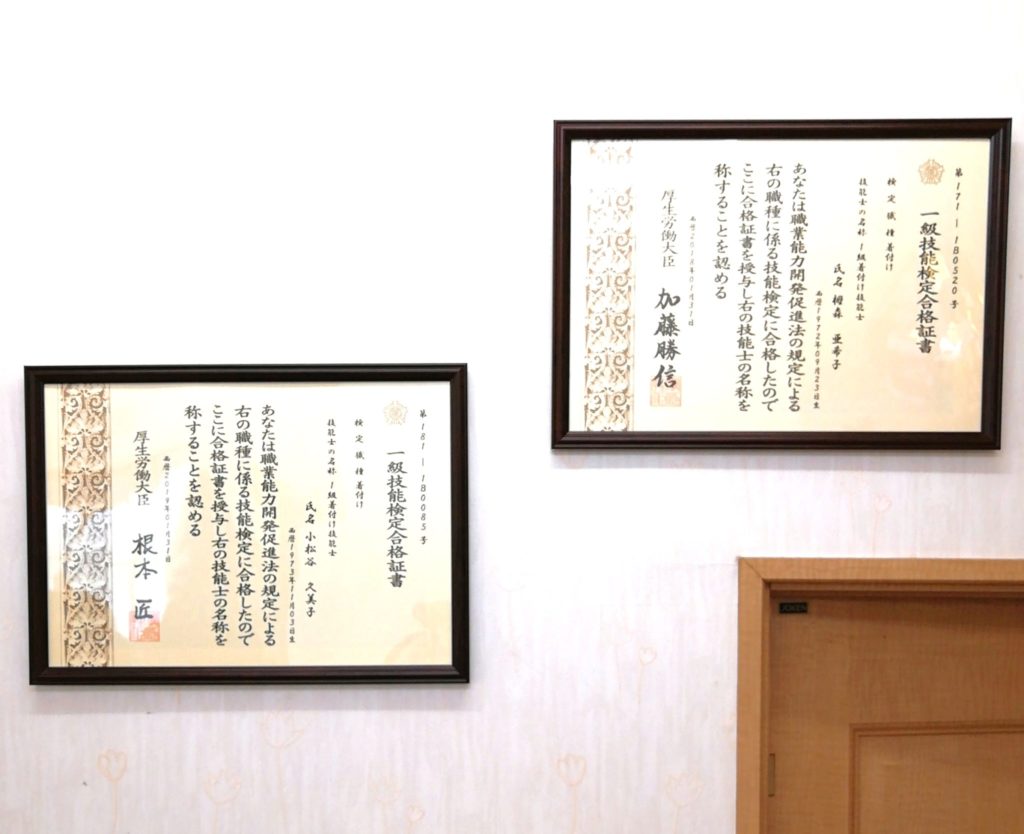 第171―1B0520号
一級技能検定合格証書
検定職種 着付け
技能士の名称 1級着付け技能士
氏名 栂森 亜希子
西暦1972年09月23日生
あなたは職業能力開発促進法の規定による
右の職種に係る技能検定に合格したので
ここに合格証書を授与し右の技能士の名称を
称することを認める
西暦2018年01月31日
厚生労働大臣 加藤勝信
第181―1B0085号
一級技能検定合格証書
検定職種 着付け
技能士の名称 1級着付け技能士
氏名 小松谷 久美子
西暦1973年11月03日生
あなたは職業能力開発促進法の規定による
右の職種に係る技能検定に合格したので
ここに合格証書を授与し右の技能士の名称を
称することを認める
西暦2019年01月31日
厚生労働大臣 根本匠